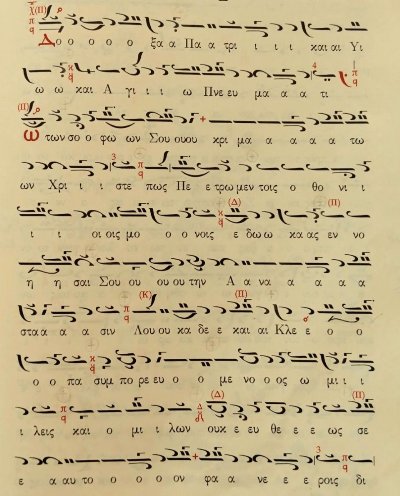 Δο ο ο ο ο ξα α Πα α τρι ι ι ι και αι Υι
ω ω και Α γι ι ι ω Πνευ μα α α τι
Ω των σο ο φω ων Σου ου ου κρι μα α α α α τω
ων Χρι ι ι στε πως Πε ε τρω μεν τοις ο θο νι ι
ι ι οι οις μο ο ο νοις ε δω ω κα ας εν νο
η η σαι Σου ου ου ου την Α α να α α α α
στα α α α σιν Λου ου κα δε ε και αι Κλε ε ο ο
ο ο πα συμ πο ρε ευ ο ο με νο ο ος ω μι ι ι
ι λεις και ο μι ι λων ου κ ε ευ θε ε ε ως σε
ε ε αυ το ο ο ο ον φα α νε ε ε ροις δι